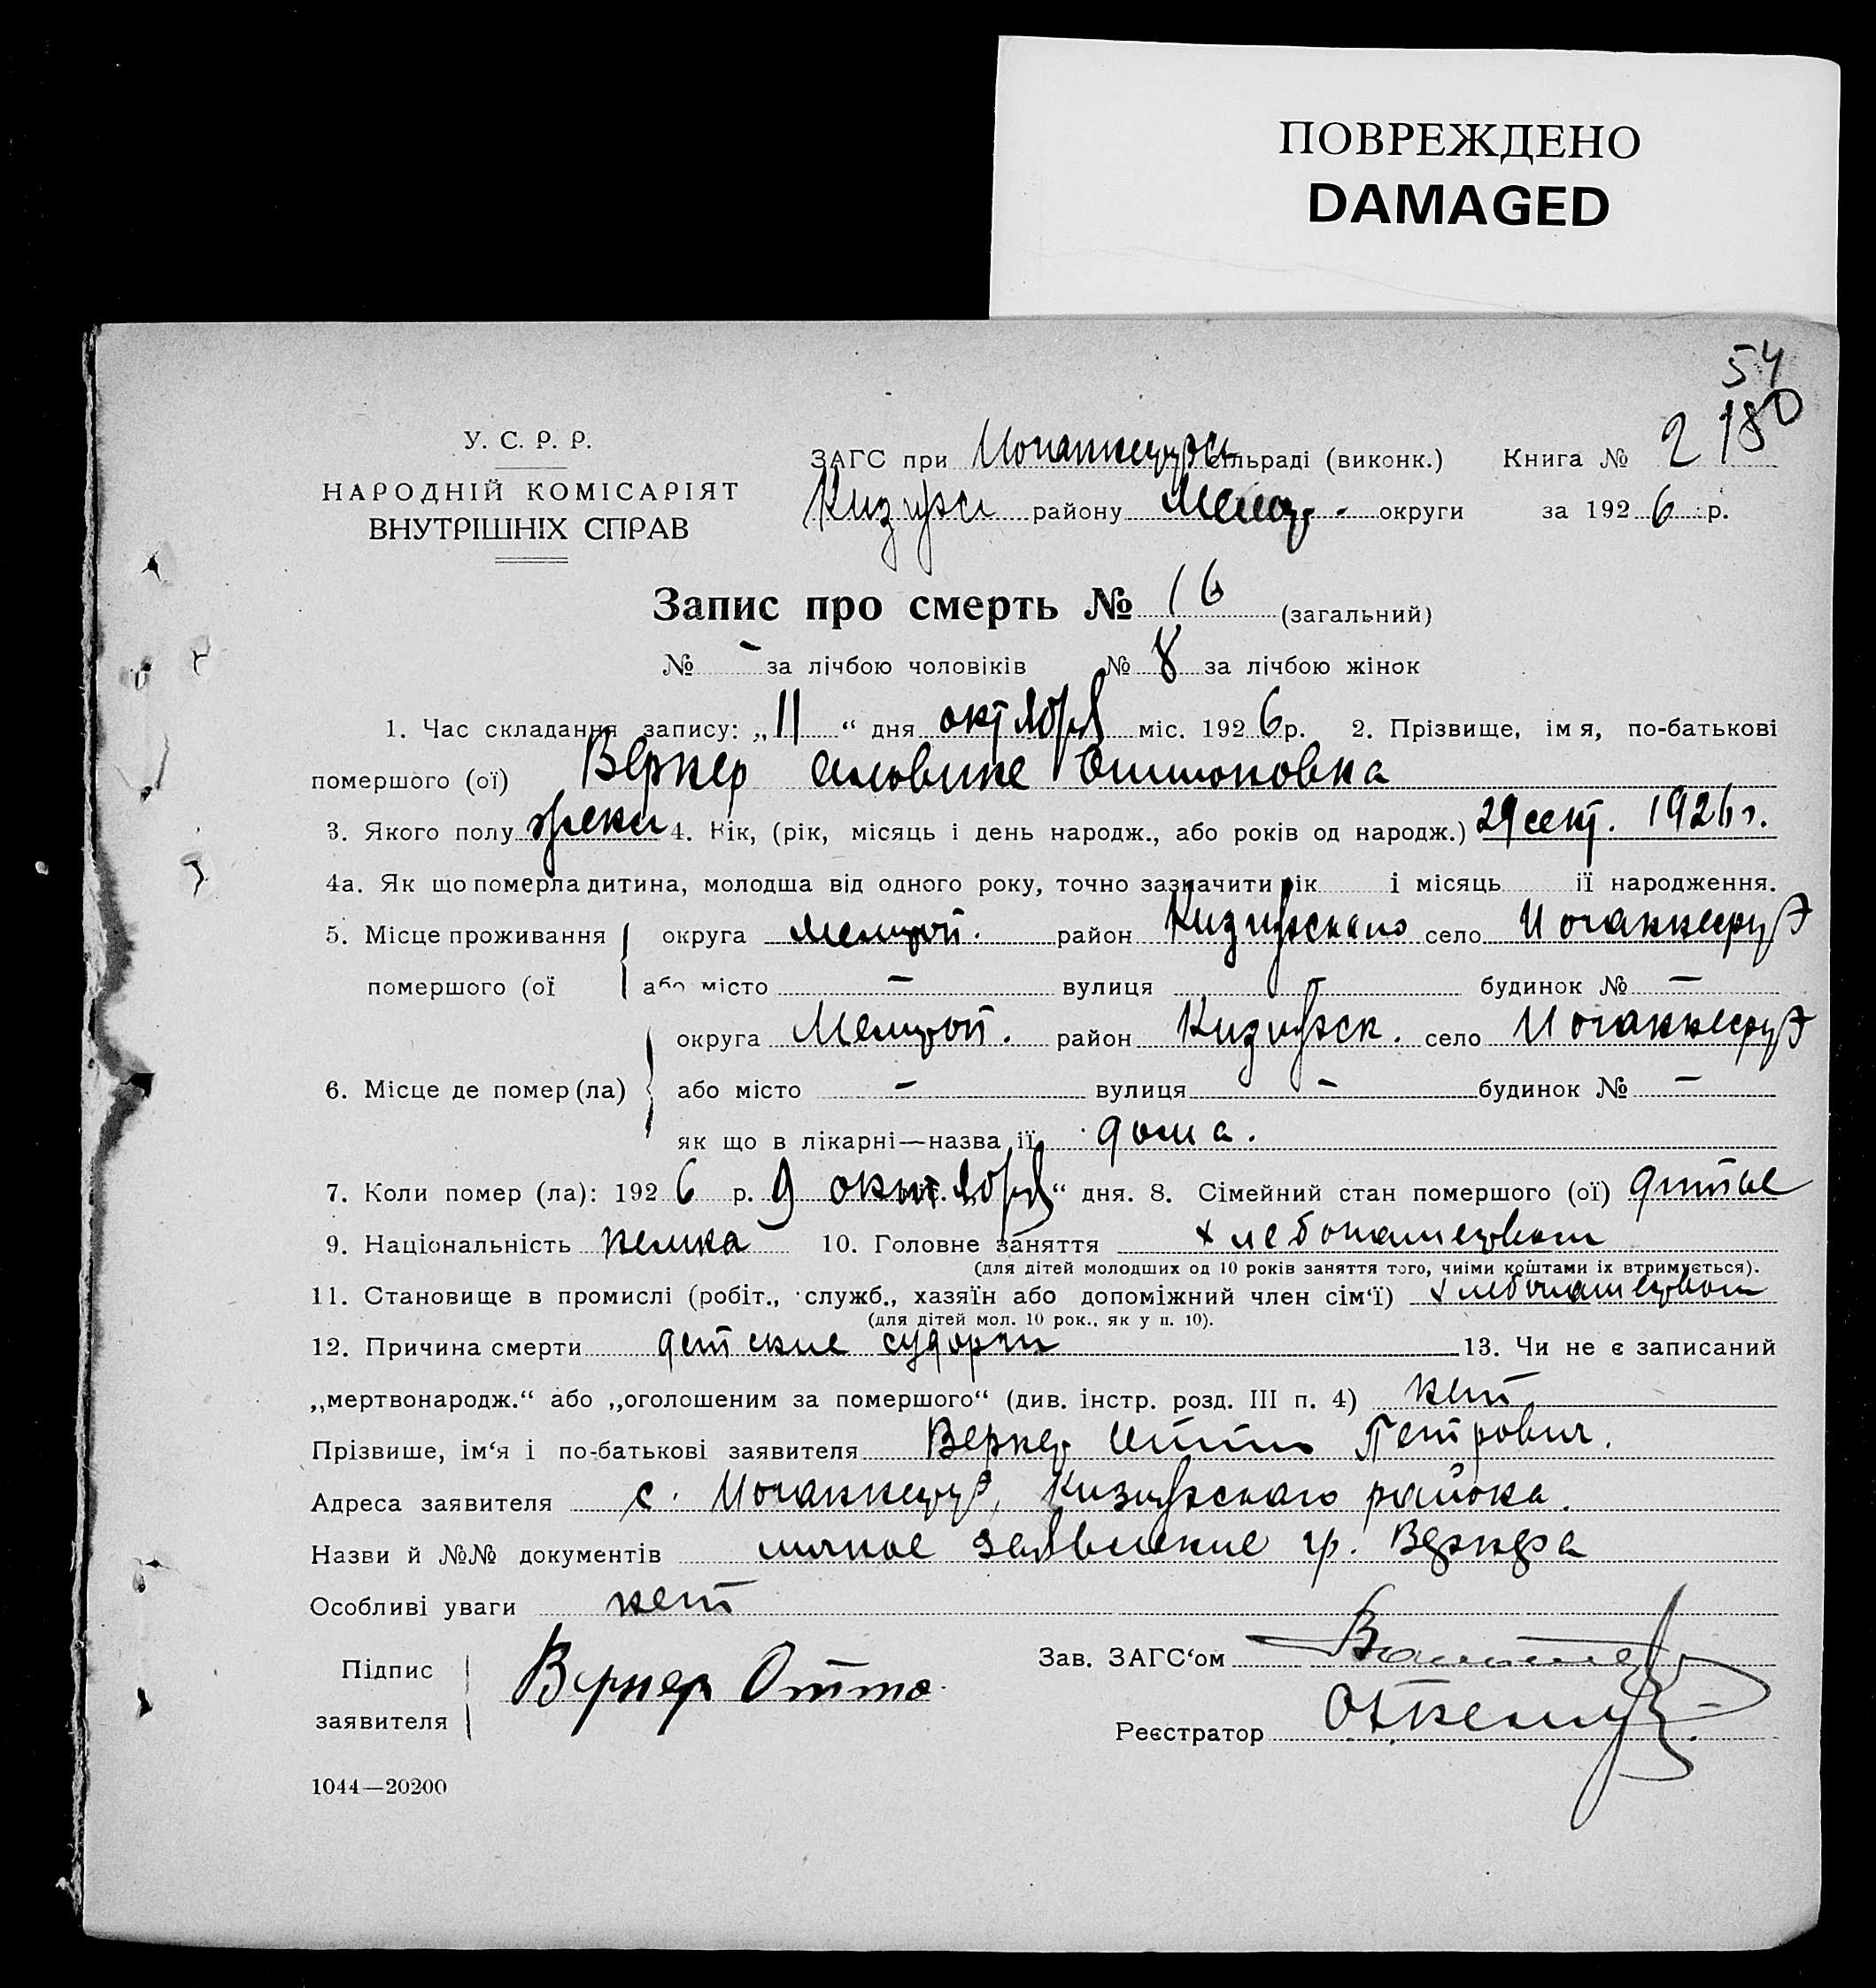 ПОВРЕЖДЕНО
DAMAGED
54
180
У. С. Р. Р.
НАРОДНІЙ КОМІСАРІЯТ
ВНУТРІШНІХ СПРАВ
ЗАГС при сільраді (виконк.) Книга № 2
району округи за 1926 р.
Запис про смерть № 16 (загальний)
№ - за лічбою чоловіків № 8 за лічбою жінок
1. Час складання запису: „11“ дня октября міс. 1926 р. 2. Прізвище, імя, по-батькові
помершого (ої) Вернер Оттоновна
3. Якого полу женск 4. Вік, (рік, місяць і день народж., або років од народж.) 29 сент. 1926 г.
4а. Як що померла дитина, молодша від одного року, точно зазначити рік і місяць її народження.
5. Місце проживання округа Мелитоп. район село
помершого (ої або місто — вулиця — будинок № —
округа Мелитоп. район село
6. Місце де помер (ла) або місто — вулиця — будинок № —
як що в лікарні—назва її дома.
7. Коли помер (ла): 1926 р. 9 октября “ дня. 8. Сімейний стан помершого (ої) дитя
9. Національність немка 10. Головне заняття хлебопашество
(для дітей молодших од 10 років заняття того, чиїми коштами їх втримується).
11. Становище в промислі (робіт., служб., хазяїн або допоміжний член сім‘ї) хлебопашество
(для дітей мол. 10 рок., як у п. 10).
12. Причина смерти детские судорги 13. Чи не є записаний
„мертвонародж.“ або „оголошеним за помершого“ (див. інстр. розд. III п. 4) нет
Прізвише, ім‘я і по-батькові заявителя Вернер Отто Петрович.
Адреса заявителя с. района.
Назви й №№ документів личное заявление гр. Вернера
Особливі уваги нет
Підпис Вернер Отто Зав. ЗАГС‘ом
заявителя Реєстратор
1044—20200